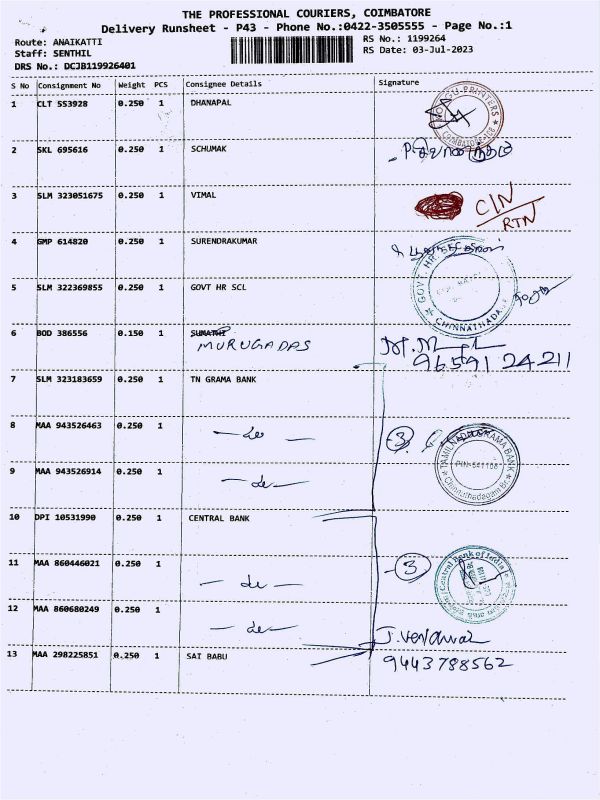 THE PROFESSIONAL COURIERS, COIMBATORE
Delivery Runsheet - P43 - Phone No.:0422-3505555 - Page No.:1
Route: ANAIKATTI
Staff: SENTHIL
DRS No.: DCJB119926401
RS No.: 1199264
RS Date: 03-Jul-2023
S No Consignment No Weight PCS Consignee Details Signature
1 CLT 553928 0.250 1 DHANAPAL
PRINTERS
COIMBATORE
2 SKL 695616 0.250 1 SCHUMAK
3 SLM 323051675 0.250 1 VIMAL C/N
RTN
4 GMP 614820 0.250 1 SURENDRAKUMAR
5 SLM 322369855 0.250 1 GOVT HR SCL
GOVT. HR.
CHINNATHADA
6 BOD 386556 0.150 1 SUMATHI
MURUGADAS
96591 24211
7 SLM 323183659 0.250 1 TN GRAMA BANK
8 MAA 943526463 0.250 1 — do — 3
TAMILNADU GRAMA BANK
PIN-641108
9 MAA 943526914 0.250 1 — do —
10 DPI 10531990 0.250 1 CENTRAL BANK
11 MAA 860446021 0.250 1 — do — 3
Central Bank of India
12 MAA 860680249 0.250 1 — do —
13 MAA 298225851 0.250 1 SAI BABU
9443788562